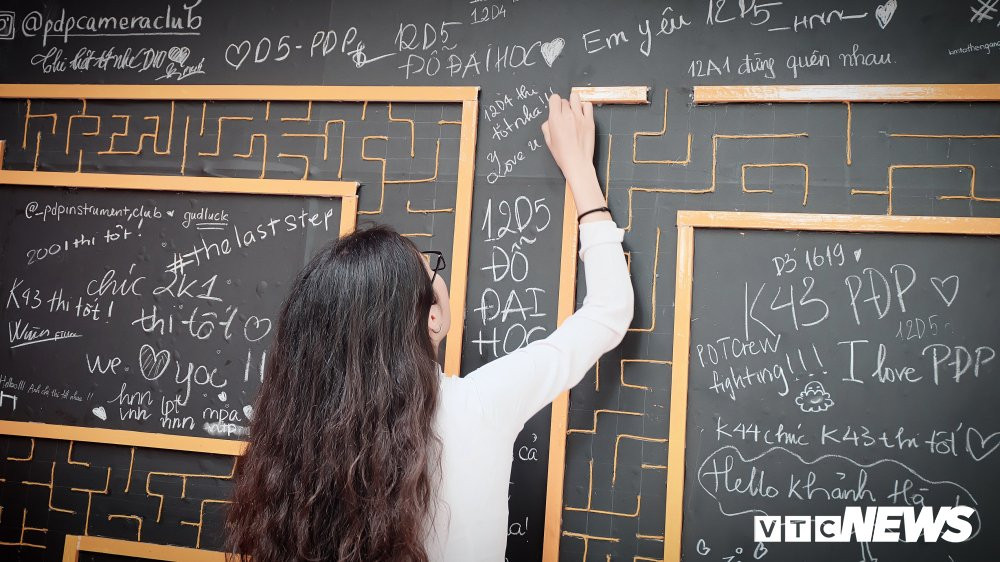 @pdpcameraclub
D5 - PDP
12D5
ĐỖ ĐẠI HỌC
12D4
Em yêu 12D5
12A1 đừng quên nhau.
12D4 thi
tốt nha!!!
Love u
@_pdpinstrument_club
gudluck
2001 thi tốt!
#thelaststep
K43 thi tốt!
chúc 2k1
thi tốt
we yoi !!
hnn lpt mpa
vnh hnn vtp
12D5
ĐỖ
ĐẠI
HỌC
cả
D3 1619
K43 PĐP
12D5
POTCrew
fighting!!!
I love PDP
K44 chúc K43 thi tốt
Hello Khánh Hà
VTC NEWS